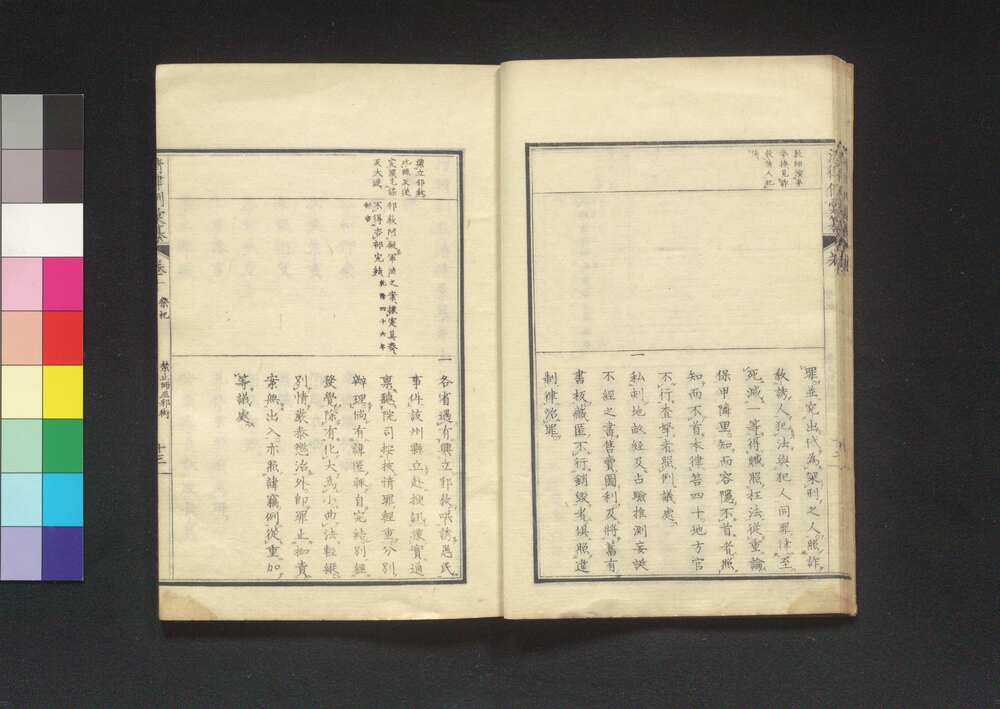 教師演拳
罪並究出代為架刑之人照詐
教誘人犯法與犯人同罪律至
死減一等得贓照枉法從重論
保甲隣里知而容隱不首者照
知而不首本律笞四十地方官
不行查拏者照例議處
一
私刻地畝經及占驗推測妄誕
不經之書售賣圖利及將舊有
書板藏匿不行銷燬者俱照違
制律治罪
興立邪教
邪教阿
軍流之案
不得咨部完結乾隆四十六年
一
各省遇有興立邪教哄誘愚民
事件該州縣立赴搜訊據實通
稟聽院司按核情罪輕重分別
辦理倘有諱匿輒自完結別經
發覺除有化大為小曲法輕縱
別情嚴參懲治外即罪止枷責
案無出入亦照諱竊例從重加
等議處
卷一
祭祀
禁止師巫邪術
十三